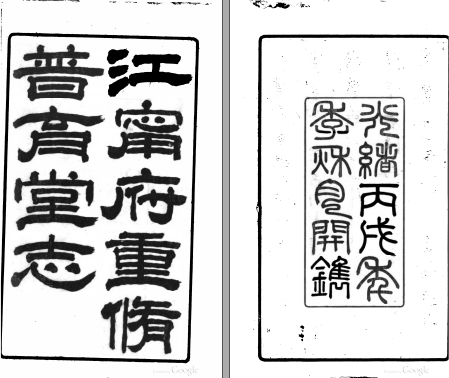 江甯府重脩
普育堂志
光緒丙戌年
季秋開鐫
Google
Google